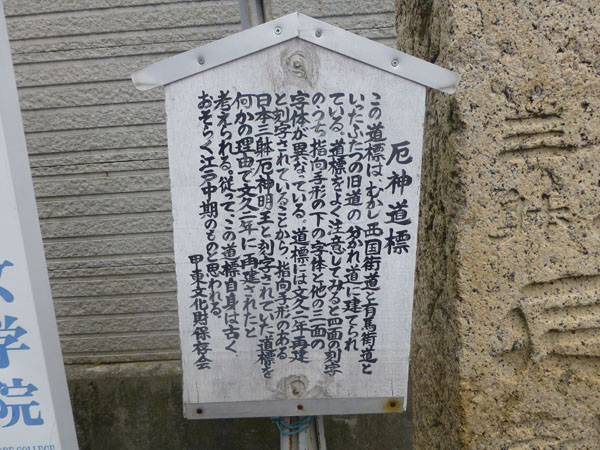 厄神道標
この道標は、むかし西国街道と有馬街道と
いったふたつの旧道の分かれ道に建てられ
ている。道標をよく注意してみると四面の刻字
のうち、指向手形の下の字体と他の三面の
字体が異なっている。道標には文久二年再建
と刻字されていることから、指向手形のある
日本三躰厄神明王と刻字されていた道標を
何かの理由で文久二年に再建されたと
考えられる。従って、この道標自身は古く
おそらく江戸中期のものと思われる。
甲東文化財保存会
三躰
学院
COLLEGE